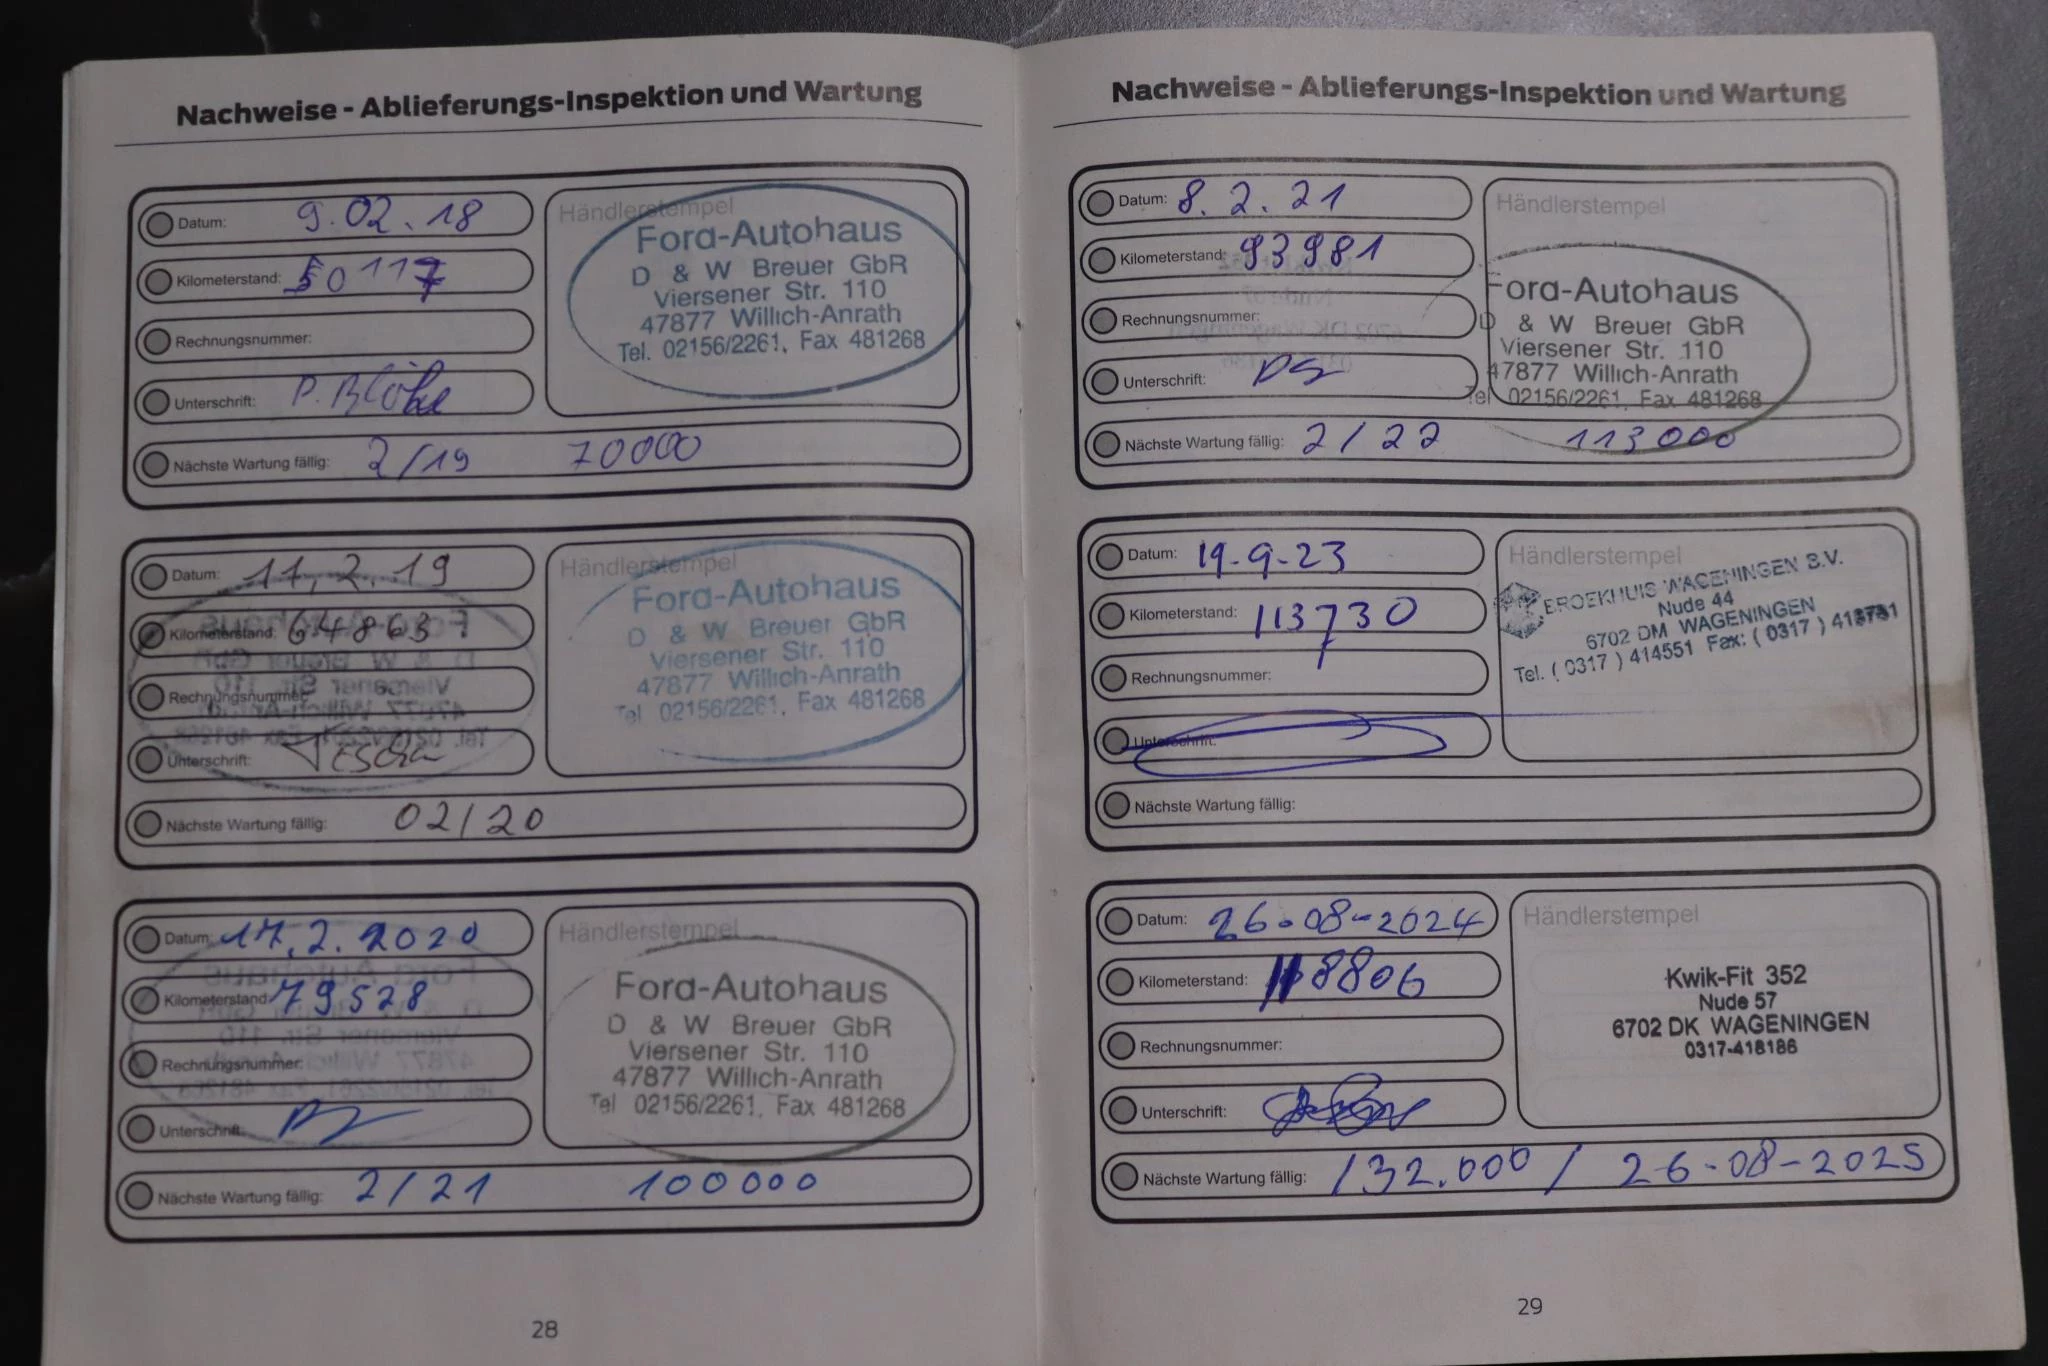 Nachweise - Ablieferungs-Inspektion und Wartung
Datum: 9.02.18
Kilometerstand: 50117
Rechnungsnummer:
Unterschrift:
Nächste Wartung fällig: 2/19 70000
Händlerstempel
Ford-Autohaus
D & W Breuer GbR
Viersener Str. 110
47877 Willich-Anrath
Tel. 02156/2261, Fax 481268
Datum: 11.2.19
Kilometerstand: 64863
Rechnungsnummer:
Unterschrift:
Nächste Wartung fällig: 02/20
Händlerstempel
Ford-Autohaus
D & W Breuer GbR
Viersener Str. 110
47877 Willich-Anrath
Tel 02156/2261, Fax 481268
Datum: 17.2.2020
Kilometerstand: 79528
Rechnungsnummer:
Unterschrift:
Nächste Wartung fällig: 2/21 100000
Händlerstempel
Ford-Autohaus
D & W Breuer GbR
Viersener Str. 110
47877 Willich-Anrath
Tel 02156/2261, Fax 481268
28
Nachweise - Ablieferungs-Inspektion und Wartung
Datum: 8.2.21
Kilometerstand: 93981
Rechnungsnummer:
Unterschrift:
Nächste Wartung fällig: 2/22 113000
Händlerstempel
Ford-Autohaus
D & W Breuer GbR
Viersener Str. 110
47877 Willich-Anrath
Tel 02156/2261, Fax 481268
Datum: 19-9-23
Kilometerstand: 113730
Rechnungsnummer:
Unterschrift:
Nächste Wartung fällig:
Händlerstempel
BROEKHUIS WAGENINGEN B.V.
Nude 44
6702 DM WAGENINGEN
Tel. ( 0317 ) 414551 Fax: ( 0317 )
Datum: 26-08-2024
Kilometerstand: 118806
Rechnungsnummer:
Unterschrift:
Nächste Wartung fällig: 132.000 / 26-08-2025
Händlerstempel
Kwik-Fit 352
Nude 57
6702 DK WAGENINGEN
0317-418186
29